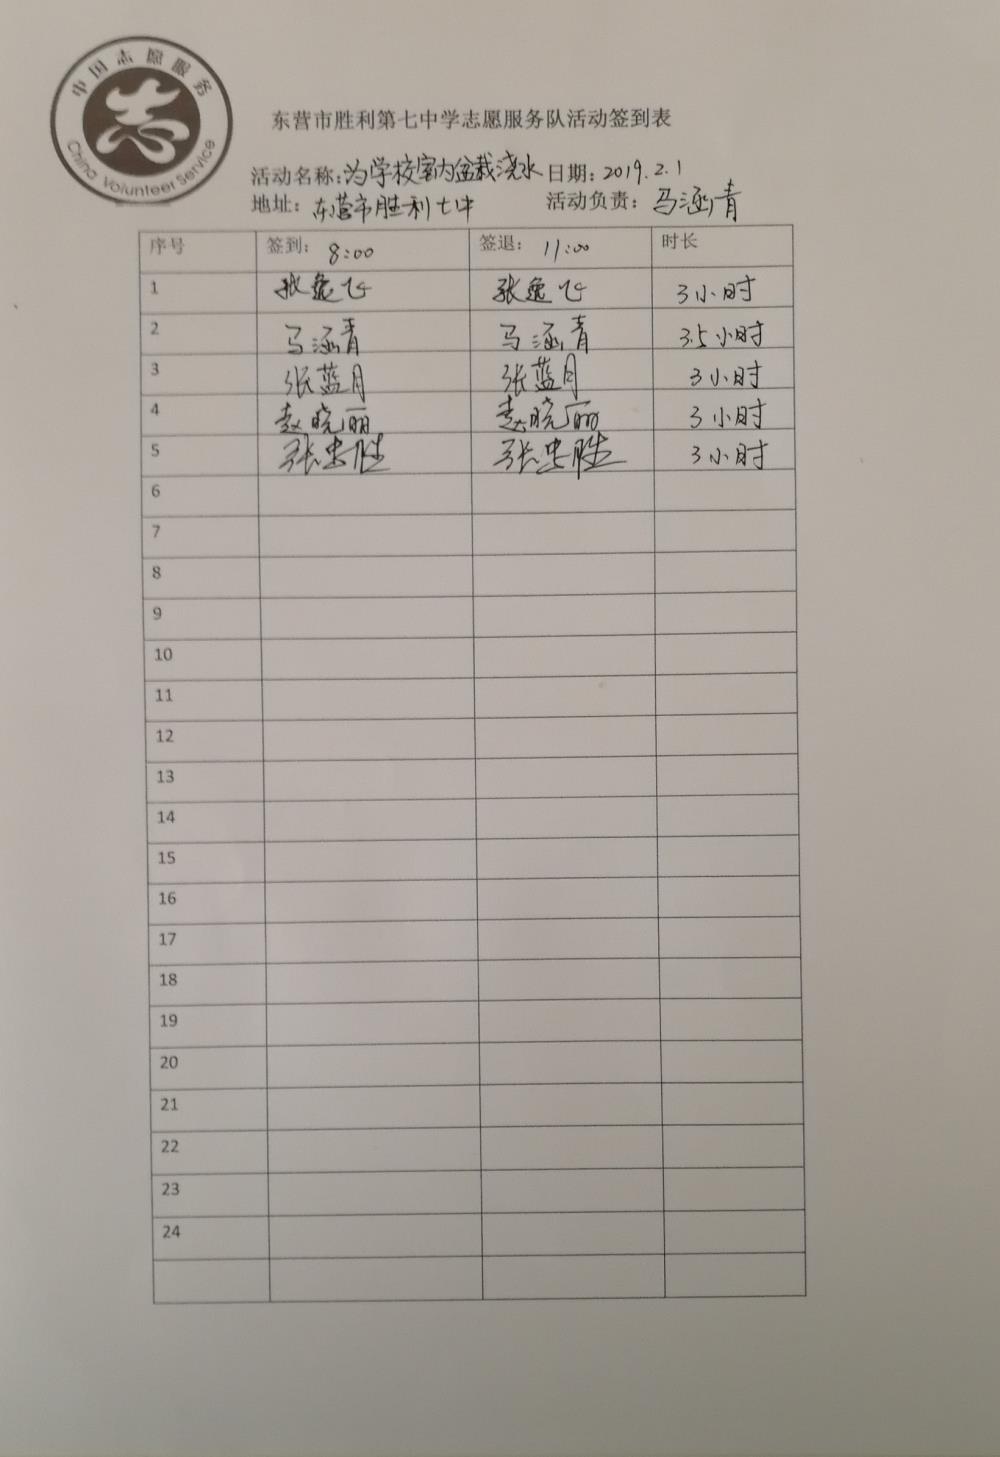 中国志愿服务
志
China Volunteer Service
东营市胜利第七中学志愿服务队活动签到表
活动名称:为学校室内盆栽浇水 日期: 2019.2.1
地址: 东营市胜利七中 活动负责: 马涵青
序号 签到: 8:00 签退: 11:00 时长
1 张逸飞 张逸飞 3小时
2 马涵青 马涵青 3.5小时
3 张蓝月 张蓝月 3小时
4 赵晓丽 赵晓丽 3小时
5 张忠胜 张忠胜 3小时
6
7
8
9
10
11
12
13
14
15
16
17
18
19
20
21
22
23
24